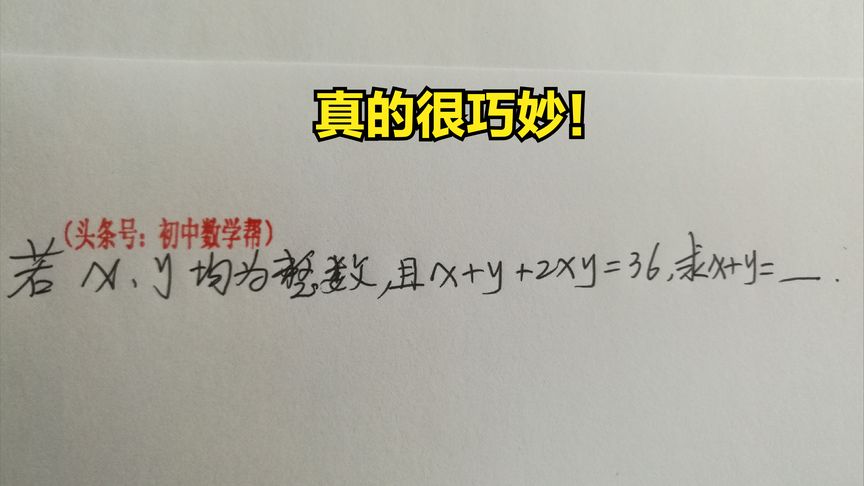 真的很巧妙!
(头条号:初中数学帮)
若x、y均为整数,且x+y+2xy=36,求x+y=__.